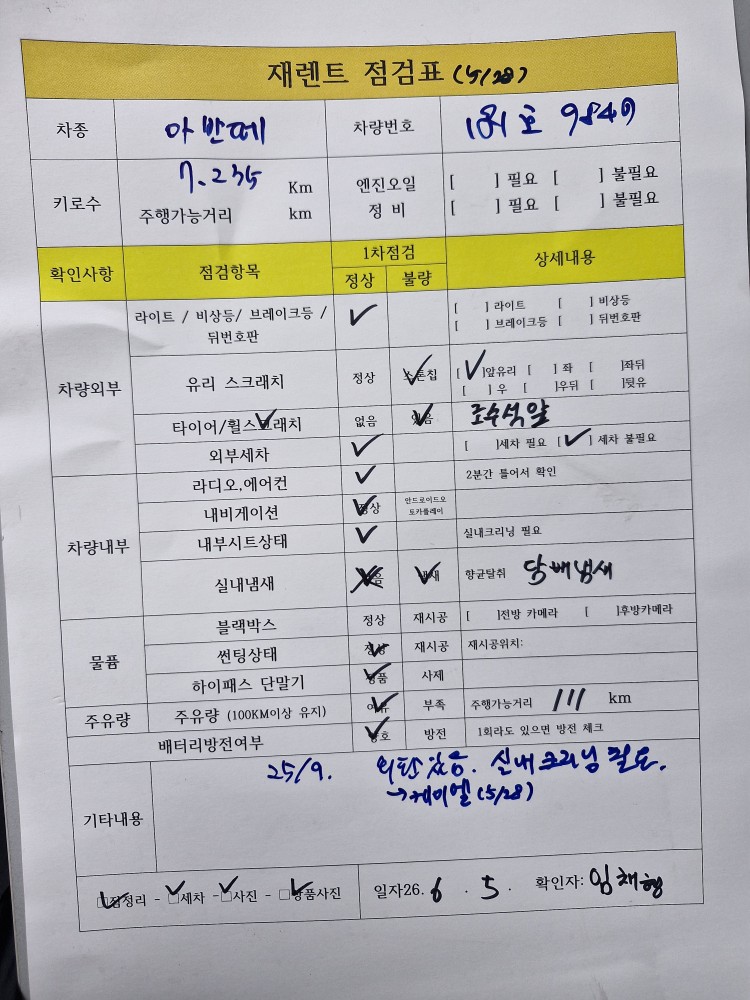 재렌트 점검표 (5/28)
차종 아반떼 차량번호 181호 9849
키로수 7.235 Km 엔진오일 [ ] 필요 [ ] 불필요
주행가능거리 km 정 비 [ ] 필요 [ ] 불필요
확인사항 점검항목 1차점검 상세내용
정상 불량
차량외부 라이트 / 비상등/ 브레이크등 / 뒤번호판 ✓ [ ] 라이트 [ ] 비상등
[ ] 브레이크등 [ ] 뒤번호판
유리 스크래치 정상 스톤칩 ✓ [✓]앞유리 [ ] 좌 [ ]좌뒤
[ ] 우 [ ]우뒤 [ ]뒷유
타이어/휠스크래치 ✓ 없음 있음 ✓ 조수석앞
외부세차 ✓ [ ]세차 필요 [✓] 세차 불필요
차량내부 라디오,에어컨 ✓ 2분간 틀어서 확인
내비게이션 정상 ✓ 안드로이드오토카플레이
내부시트상태 ✓ 실내크리닝 필요
실내냄새 없음 냄새 ✓ 향균탈취 담배냄새
물품 블랙박스 정상 재시공 [ ]전방 카메라 [ ]후방카메라
썬팅상태 정상 ✓ 재시공 재시공위치:
하이패스 단말기 정품 ✓ 사제
주유량 주유량 (100KM이상 유지) 여유 ✓ 부족 주행가능거리 111 km
배터리방전여부 양호 ✓ 방전 1회라도 있으면 방전 체크
기타내용 25/9. 외판 있음. 실내크리닝 필요.
→케이엘 (5/28)
✓점정리 - ✓세차 - ✓사진 - ✓용품사진 일자26. 6 . 5 . 확인자: 임채형